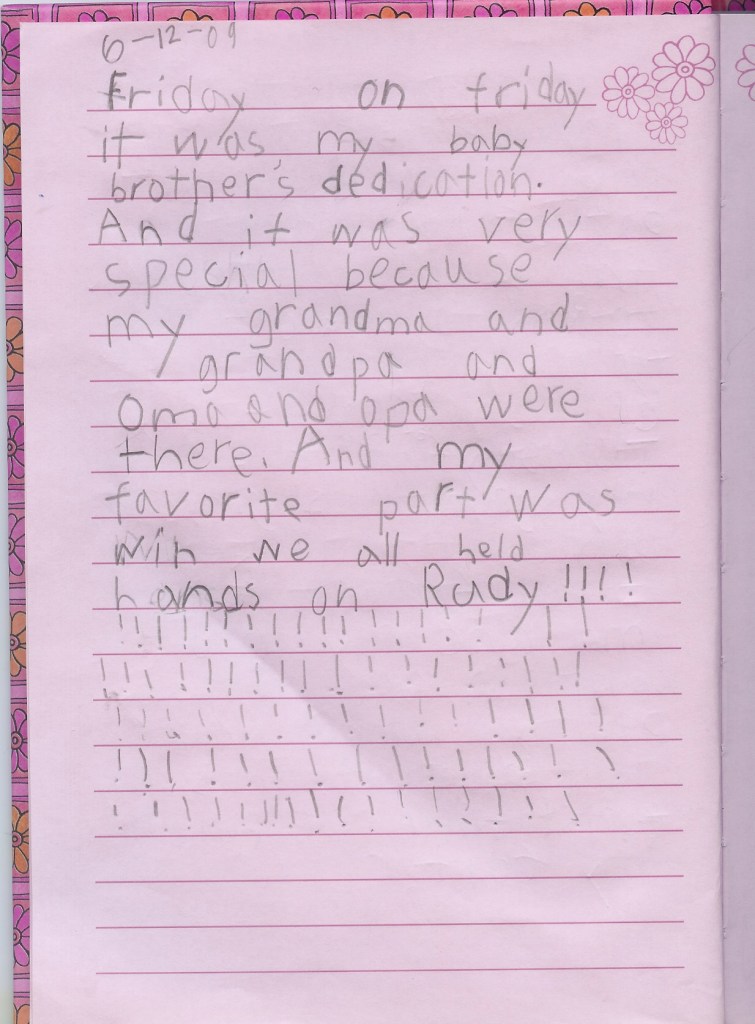 6-12-09
Friday on friday
it was my baby
brother's dedication.
And it was very
special because
my grandma and
grandpa and
Oma and opa were
there. And my
favorite part was
win we all held
hands on Rudy!!!!
!!!!!!!!!!!!!!!!!!!!
!!!!!!!!!!!!!!!!!!!!!
!!!!!!!!!!!!!!!
!!!!!!!!!!!!!!!!
!!!!!!!!!!!!!!!!!